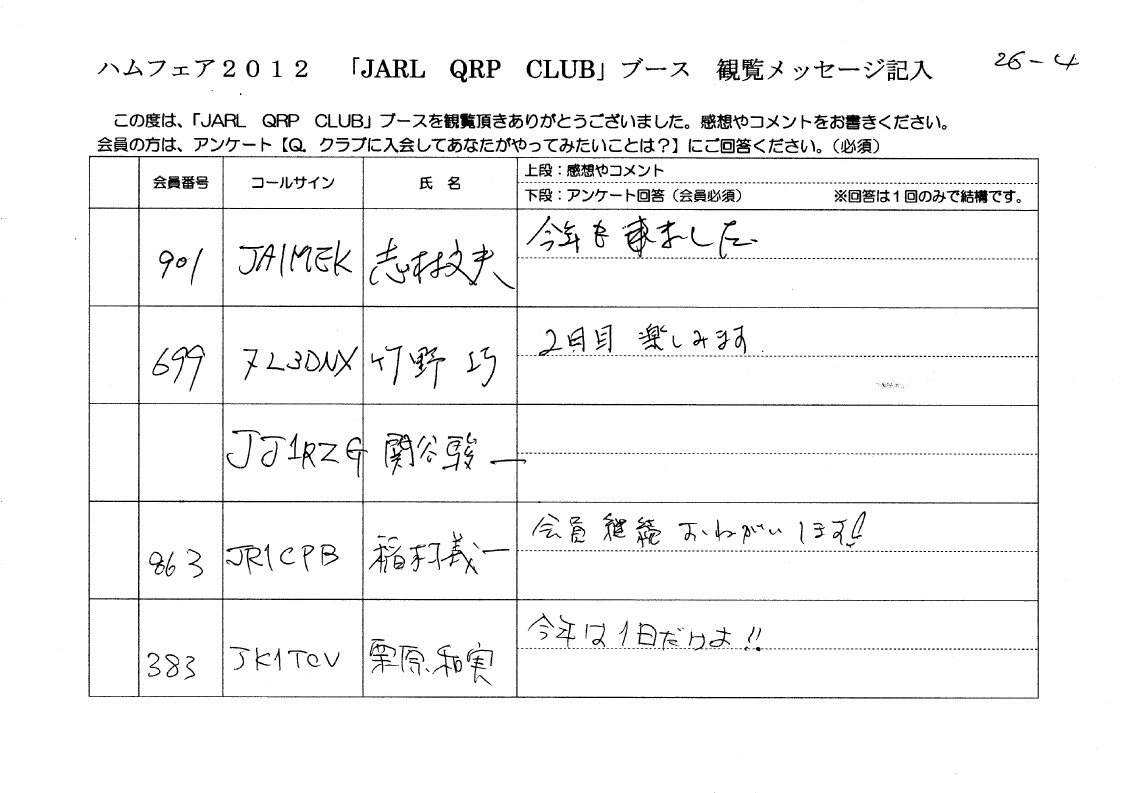 ハムフェア2012 「JARL QRP CLUB」ブース 観覧メッセージ記入 26-4
この度は、「JARL QRP CLUB」ブースを観覧頂きありがとうございました。感想やコメントをお書きください。
会員の方は、アンケート【Q. クラブに入会してあなたがやってみたいことは?】にご回答ください。(必須)
会員番号 コールサイン 氏 名 上段:感想やコメント
下段:アンケート回答(会員必須) ※回答は1回のみで結構です。
901 JA1MEK 志村文夫 今年も来ました
699 7L3DNX 竹野 巧 2日目 楽しみます
JJ1RZG 関谷駿一
863 JR1CPB 稲村義一 会員継続おねがいします!!
383 JK1TCV 栗原和実 今年は1日だけよ!!